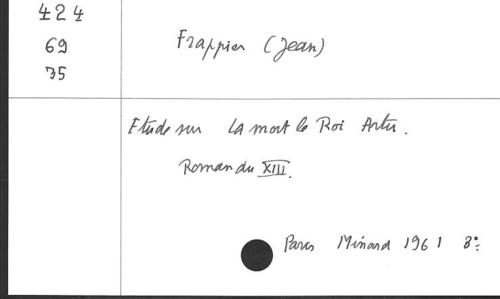 424
69
75
Frappier (Jean)
Etude sur La mort le Roi Artu.
Roman du XIII.
Paris Minard 1961 8°: